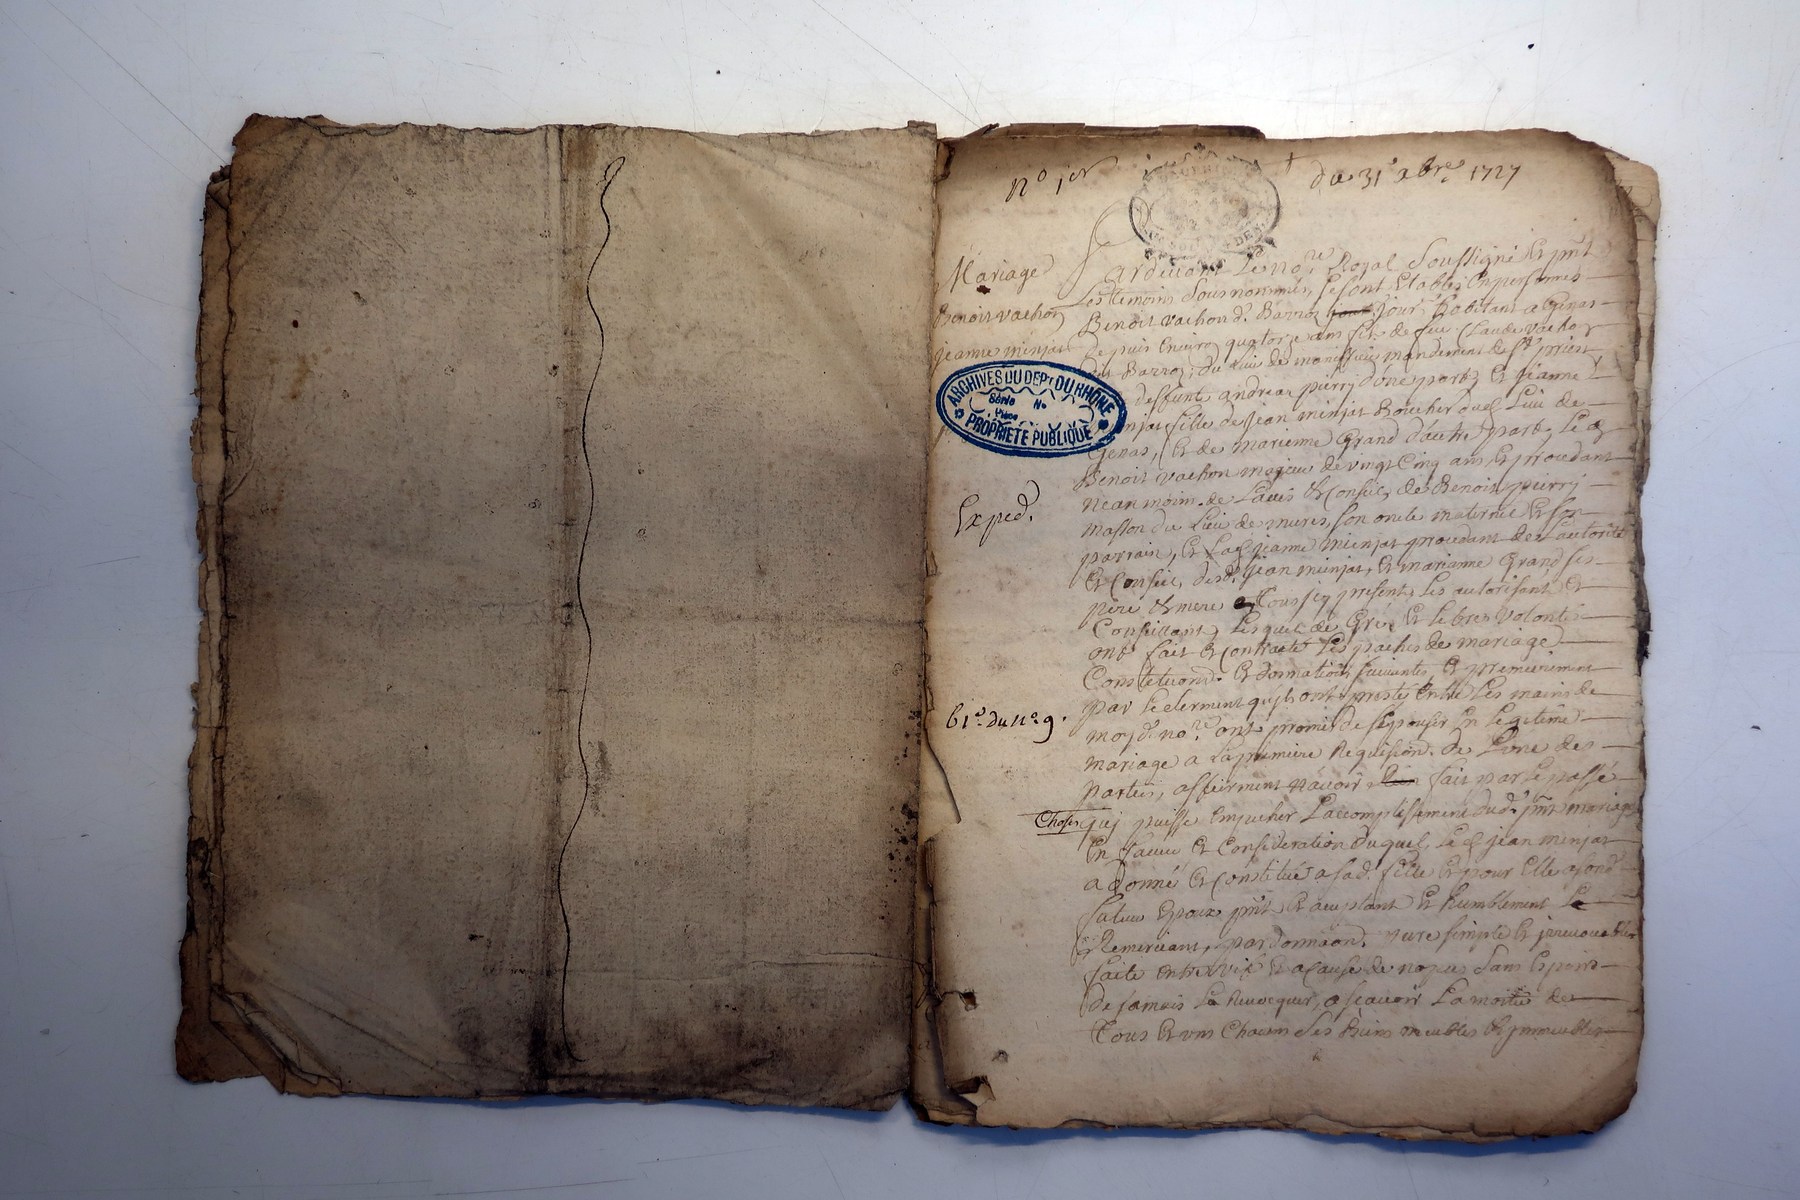 n° 1er
du 31e xbre 1727
Mariage
Benoit vachon
jeanne minjat
ARCHIVES DU DEPT DU RHÔNE
Série No
Pièce
PROPRIÉTÉ PUBLIQUE
Exped.
Pardevant Le nore Royal soussigné Et pnt
Les temoins sousnommés, se sont Etablis En personnes
Benoit vachon d. Barroz jour habitant a Genas
depuis Environ quatorze ans fils de feu Claude vachon
dit Barroz, du lieu de mandement de st priest
deffunte andrea pierry d'une part, Et jeanne
minjat fille de Jean minjat Boucher dud Lieu de
Genas, Et de marianne Grand d'autre part, Le d
Benoit vachon majeur de vingt Cinq ans, Et proceddant
neanmoins de L'avis & Conseil, de Benoit pierry
masson du Lieu de mures, son oncle maternel Et son
parrain, Et lad jeanne minjat proceddant de L'autorité
Et Conseil, desd. jean minjat, Et marianne Grand ses
père & mere Tous icy presents, Les autorisant Et
Conseillant, Lesquels de Gré, Et Libres volontés
ont fait Et Contracté Les paches de mariage
Constitutions Et donnations suivantes, Et premierement
par Le serment quils ont presté Entre Les mains de
moyd. nore ont promis de s'épouser En Legitime
mariage a La premiere Requision de L'une des
parties, affirment n'avoir rien fait par Le passé
Choses quj puisse Empecher L'accomplissement dud. pnt mariage
En faveur Et Consideration duquel, Le d jean minjat
a donné Et Constitué a sad. fille Et pour Elle a sond
futur Epoux pnt Et acceptant Et humblement Le
Remerciant, par donnaon. pure simple Et jrrevocable
faite Entre vifs Et a Cause de noces sans Espoir
de jamais La Revocquer, a sçavoir La moitié de
Tous Et uns Chacuns ses biens meubles Et jmmeubles
61e. du n° 9.